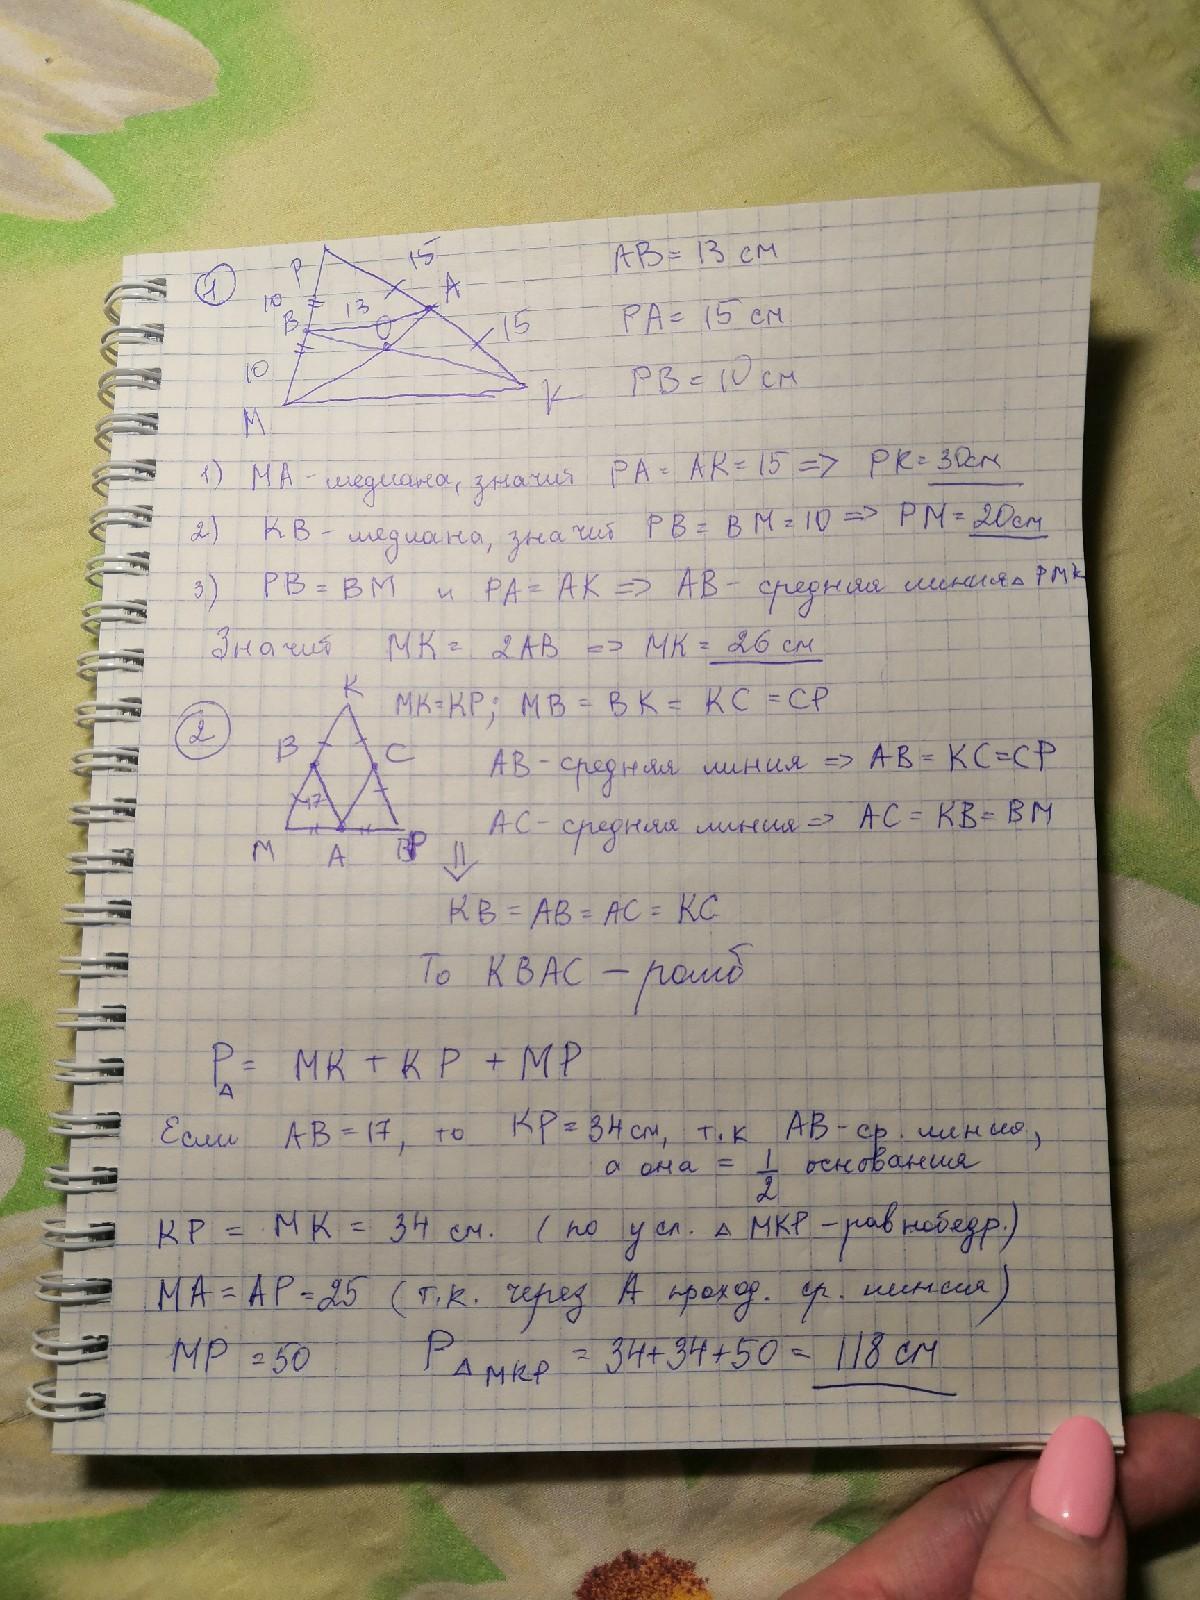 1
P
15
A
10
B
13
O
15
10
M
K
AB = 13 см
PA = 15 см
PB = 10 см
1) MA - медиана, значит PA = AK = 15 => PK = 30см
2) KB - медиана, значит PB = BM = 10 => PM = 20см
3) PB = BM и PA = AK => AB - средняя линия △ PMK
Значит MK = 2AB => MK = 26 см
2
K
B
C
17
M
A
P
MK=KP; MB = BK = KC = CP
AB - средняя линия => AB = KC = CP
AC - средняя линия => AC = KB = BM
⇓
KB = AB = AC = KC
То KBAC - ромб
P△ = MK + KP + MP
Если AB = 17, то KP = 34 см, т.к AB - ср. линия,
а она = 1/2 основания
KP = MK = 34 см. (по усл. △ MKP - равнобедр.)
MA = AP = 25 (т.к. через A проход. ср. линия)
MP = 50 P△MKP = 34+34+50 = 118 см